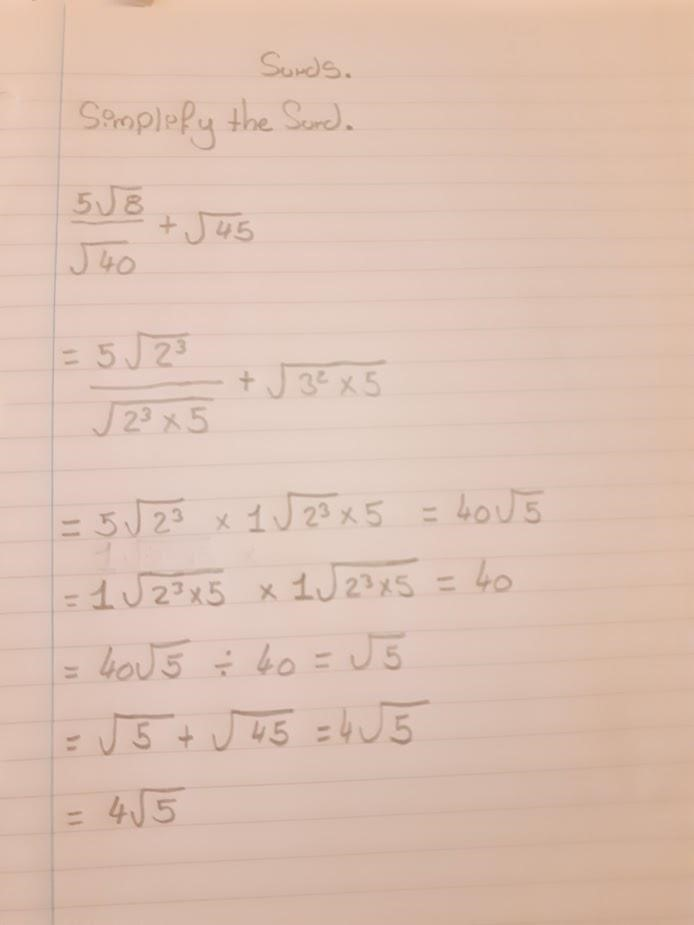 Surds.
Simplify the Surd.
5√8 / √40 + √45
= 5√2³ / √2³ × 5 + √3² × 5
= 5√2³ × 1√2³ × 5 = 40√5
= 1√2³×5 × 1√2³×5 = 40
= 40√5 ÷ 40 = √5
= √5 + √45 = 4√5
= 4√5